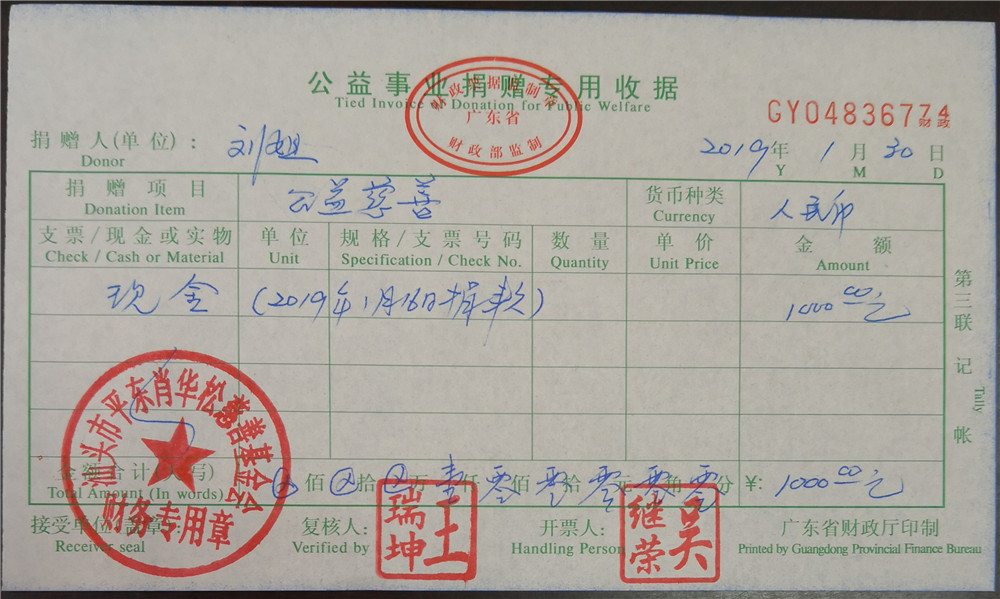 公益事业捐赠专用收据
Tied Invoice of Donation for Public Welfare
广东省
财政部监制
GY04836774
财政
捐赠人(单位): 刘姐 2019年1月30日
Donor Y M D
捐赠项目 公益慈善 货币种类 人民币
Donation Item Currency
支票/现金或实物 单位 规格/支票号码 数量 单价 金额
Check / Cash or Material Unit Specification / Check No. Quantity Unit Price Amount
现金 (2019年1月16日捐款) 1000.00元
第三联 记帐
Tally
金额合计(大写) 佰 拾 万 壹仟 零佰 零拾 零元 零角 零分 ¥: 1000.00元
Total Amount (In words)
接受单位(盖章): 复核人: 开票人: 广东省财政厅印制
Receiver seal Verified by Handling Person Printed by Guangdong Provincial Finance Bureau
汕头市平东肖华松慈善基金会
财务专用章
王瑞坤
吴继荣